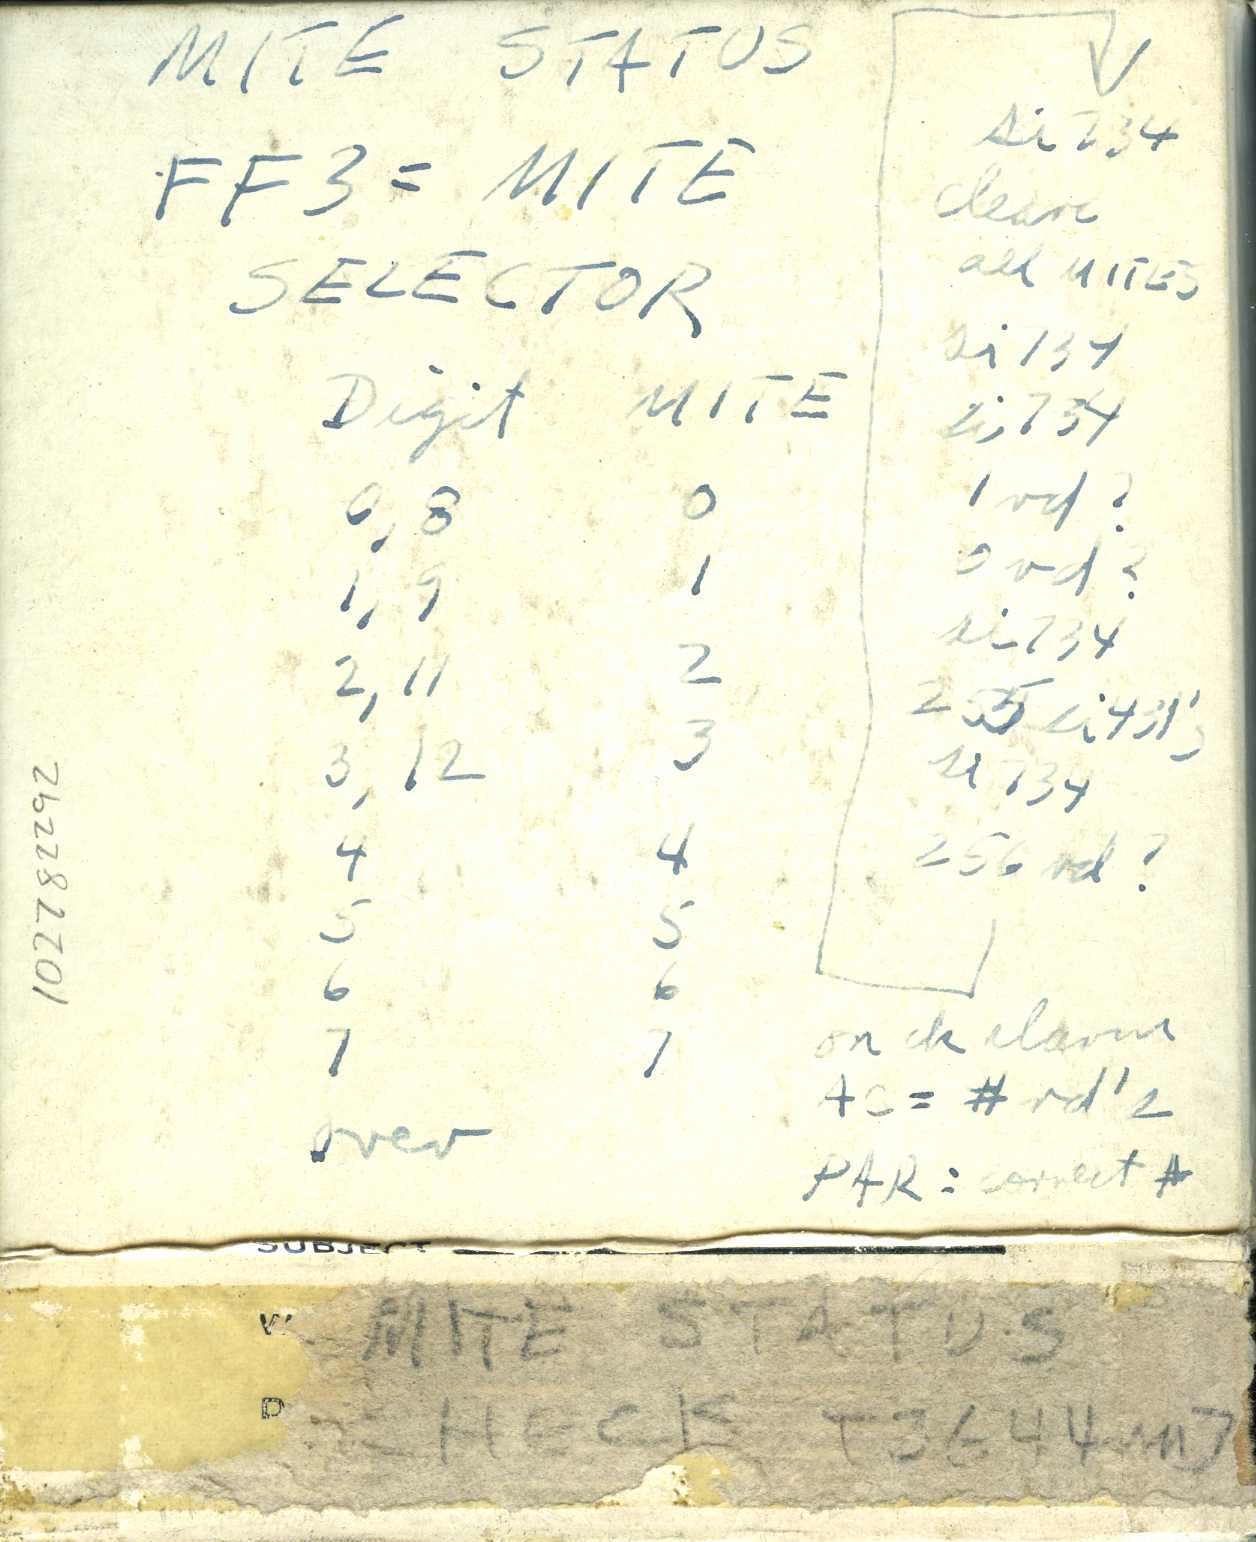 MITE STATUS
FF3 = MITE
SELECTOR
Digit MITE
0, 8 0
1, 9 1
2, 11 2
3, 12 3
4 4
5 5
6 6
7 7
over
si 734
clears
all MITES
si 134
si 734
1 rd ?
0 rd ?
si 734
255 si 431's
si 734
256 rd ?
on ck alarm
AC = # rd's
PAR = correct #
102782292
SUBJECT
MITE STATUS
CHECK T3644